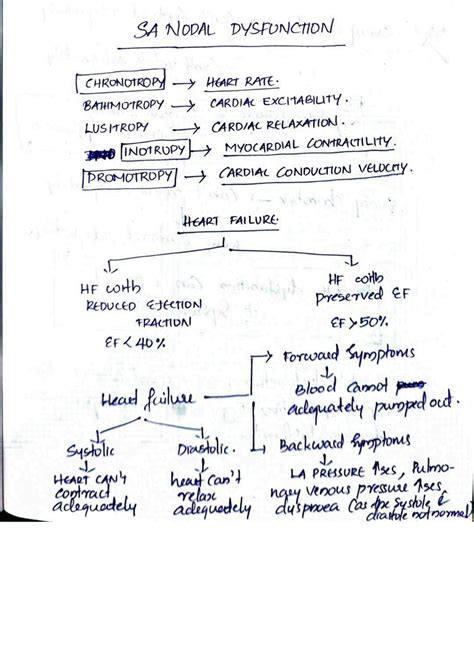 SA NODAL DYSFUNCTION
CHRONOTROPY → HEART RATE.
BATHMOTROPY → CARDIAC EXCITABILITY.
LUSITROPY → CARDIAC RELAXATION.
INOTROPY → MYOCARDIAL CONTRACTILITY.
DROMOTROPY → CARDIAC CONDUCTION VELOCITY.
HEART FAILURE.
HF with
REDUCED EJECTION
FRACTION
EF < 40%
HF with
preserved EF
EF > 50%.
Heart failure
Forward Symptoms
Blood cannot
adequately pumped out.
Systolic
HEART CAN'T
contract
adequately
Diastolic.
heart can't
relax
adequately
Backward Symptoms
LA PRESSURE ↑ses, Pulmo-
nary venous pressure ↑ses,
dyspnoea (as the systole &
diastole not normal)